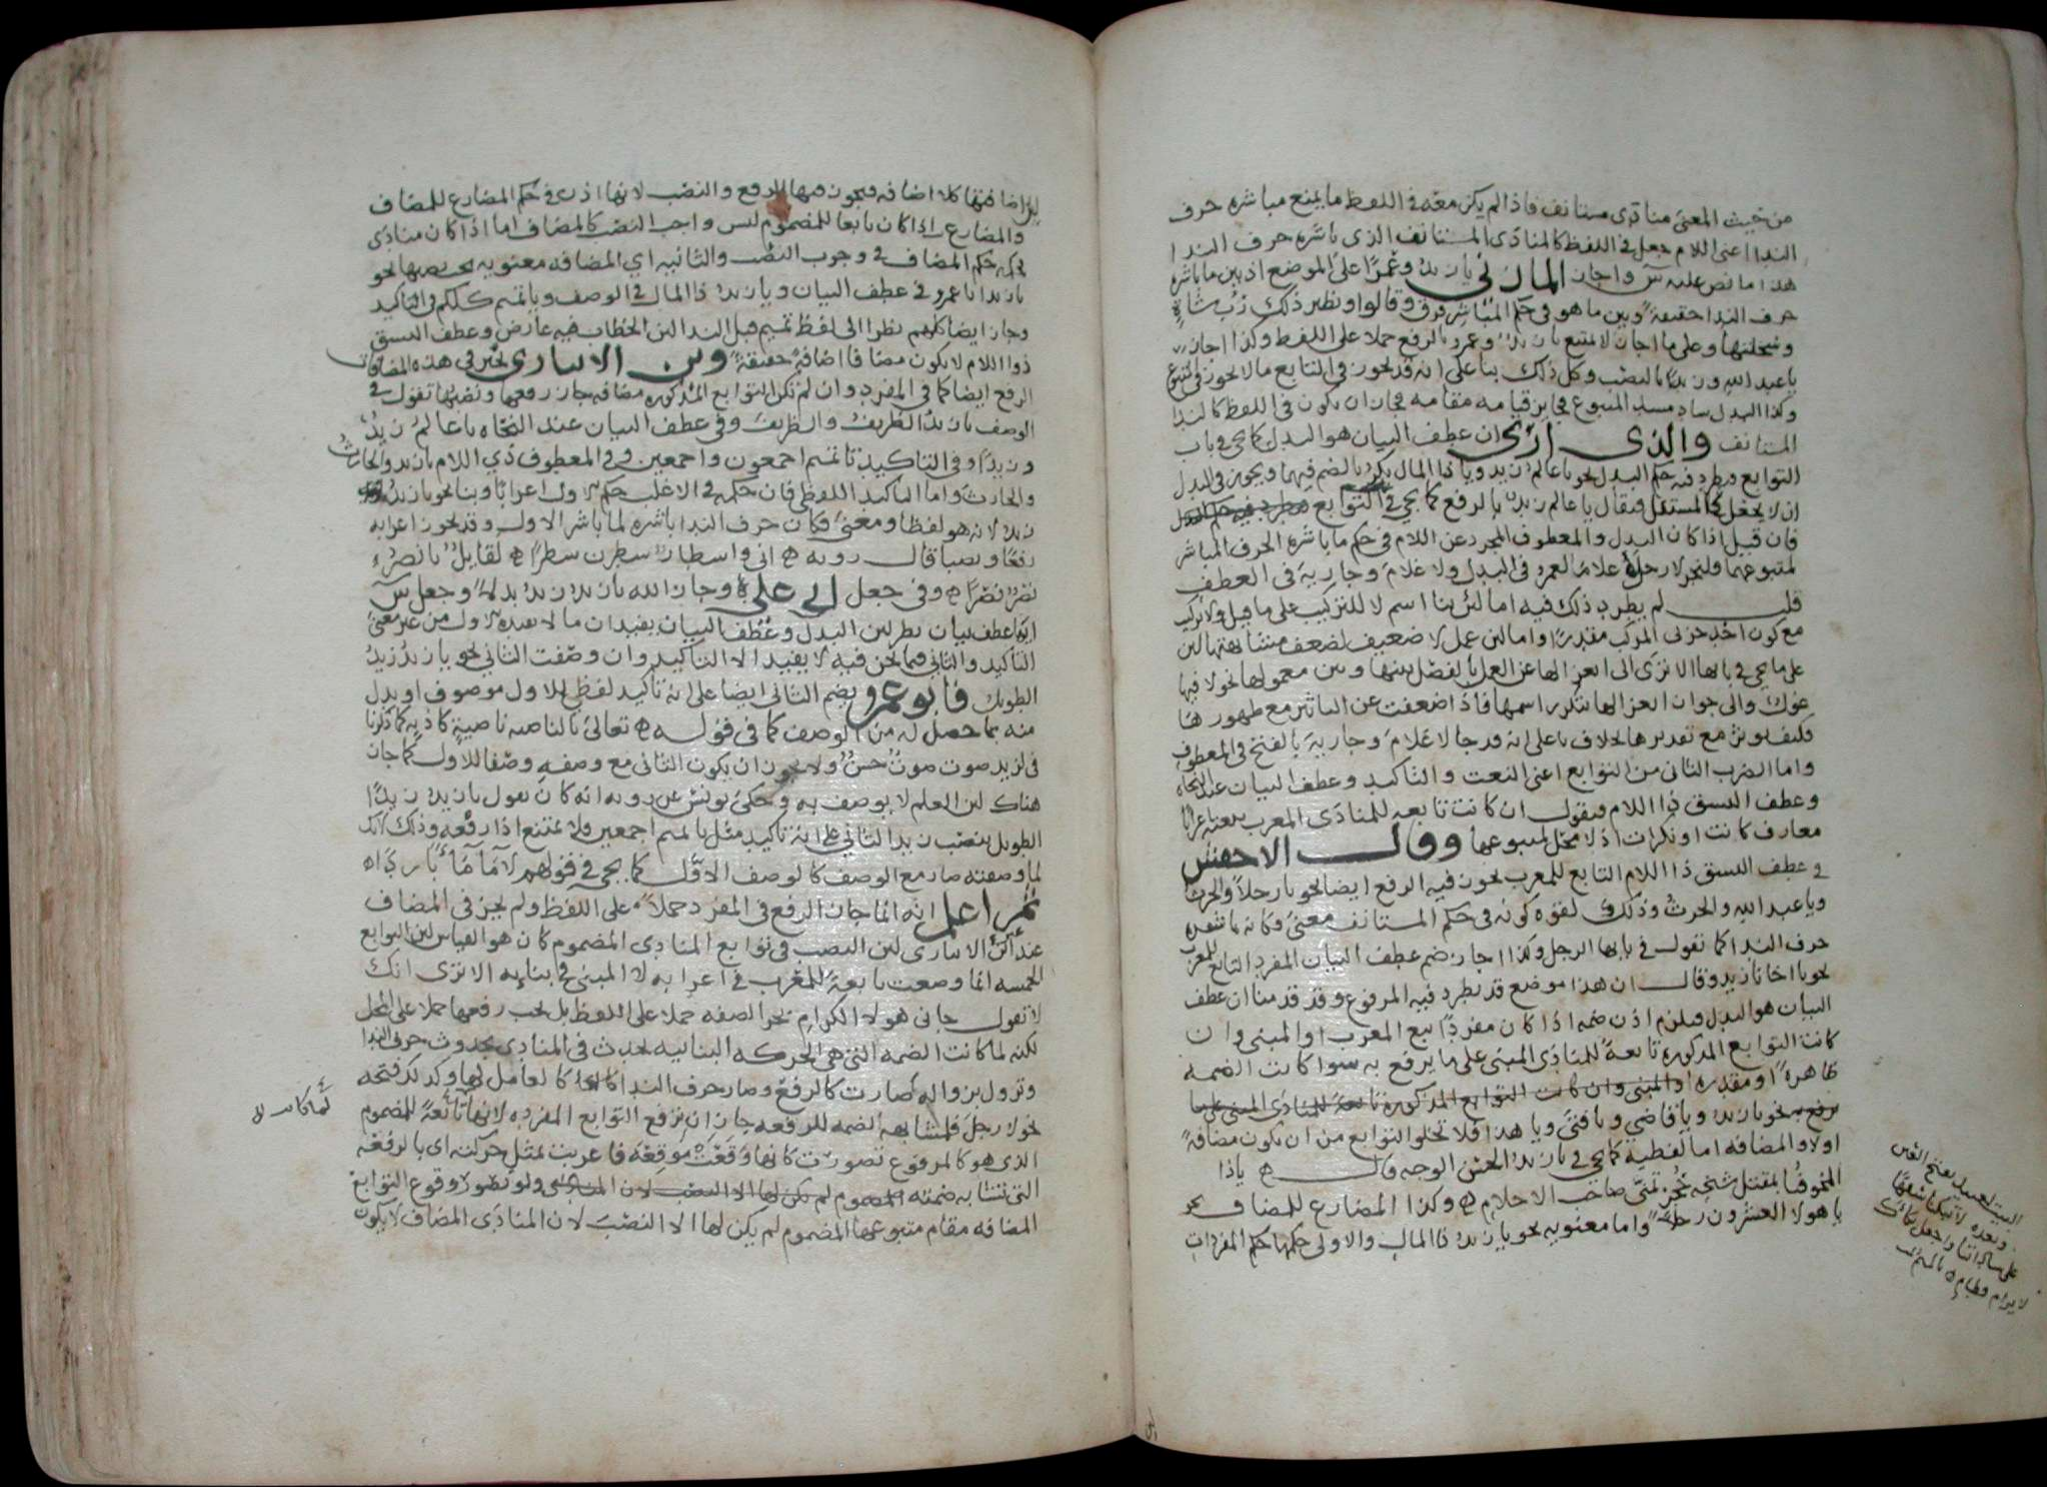 من حيث المعنى منادى مستانف فاذا لم يكن معه في اللفظ ما يمنع مباشره حرف
الندا اعنى اللام جعل في اللفظ كالمنادى المستانف الذي باشره حرف الندا
هذا ما نص عليه س واجاز المازني يا زيد وعمرا على الموضع اذ بين ما باشره
حرف الندا حقيقة وبين ما هو في حكم المباشر فرق وقالوا ونظير ذلك رب شاة
وسخلتها وعلى ما اجاز لا يمتنع يا زيد وعمرو بالرفع حملا على اللفظ وكذا اجاز
يا عبد الله وزيدا بالنصب وكل ذلك بنا على انه قد يجوز في التابع ما لا يجوز في المتبوع
وكذا البدل ساد مسد المتبوع قيامه مقامه فجاز ان يكون في اللفظ كالندا
المستانف والذي ارى ان عطف البيان هو البدل كما يجي في باب
التوابع فيطرد فيه حكم البدل نحو يا عالم زيد ويا ذا المال بكر بالضم فيهما ويجوز في البدل
ان لا يجعل كالمستقل فيقال يا عالم زيد بالرفع كما يجي في التوابع فيطرد فيه حكم البدل
فان قيل اذا كان البدل والمعطوف المجرد عن اللام في حكم ما باشره الحرف المباشر
لمتبوعهما فليجز لا رجل غلام لعمرو في البدل ولا غلام وجارية في العطف
قلت لم يطرد ذلك فيه اما لئن بنا اسم لا للتركيب على ما قيل ولا تركيب
مع كون احد جزئي المركب مقدرا واما لئن عمل لا ضعيف لضعف مشابهتها لئن
على ما يجي في بابها الا ترى الى انعزالها عن العمل بالفصل بينها وبين معمولها نحو لا فيها
غول والى جواز انعزالها بتكرر اسمها فاذا ضعفت عن التاثير مع ظهورها
فكيف تؤثر مع تقديرها بخلاف يا على انه قد جا لا غلام وجارية بالفتح في المعطوف
واما الضرب الثاني من التوابع اعنى النعت والتاكيد وعطف البيان عند النحاه
وعطف النسق ذا اللام فنقول ان كانت تابعه للمنادى المعرب تبعته اعرابا
معارف كانت او نكرات اذ لا محل لمتبوعها وقال الاخفش
في عطف النسق ذا اللام التابع للمعرب يجوز فيه الرفع ايضا نحو يا رجلا والحرث
ويا عبد الله والحرث وذلك لقوه كونه في حكم المستانف معنى وكانه باشره
حرف الندا كما تقول في يا ايها الرجل وكذا اجاز ضم عطف البيان المفرد التابع للمعرب
نحو يا اخانا زيد وقال ان هذا موضع قد يطرد فيه المرفوع وقد قدمنا ان عطف
البيان هو البدل فيلزم اذن ضمه اذا كان مفردا تبع المعرب او المبنى وان
كانت التوابع المذكوره تابعة للمنادى المبنى على ما يرفع به سوا كانت الضمه
ظاهرة او مقدره او المبنى وان كانت التوابع المذكورة تابعة للمنادى المبنى على ما
يرفع به نحو يا زيد ويا قاضي ويا فتى ويا هذا فلا تخلو التوابع من ان تكون مضافة
او لا والمضافه اما لفظية كما يجي في يا زيد الحسن الوجه قال يا ذا
المخوفنا بمقتل شيخه حجر تمنى صاحب الاحلام وكذا المضارع للمضاف نحو
يا هولا العشرون رجلا واما معنويه نحو يا زيد ذا المال والاولى حكمها حكم المفردات
البيت لعبيد
وبعده لا تبكنا سفها
لان اضافتها كلا اضافه فيجوز فيها الرفع والنصب لانها اذن في حكم المضارع للمضاف
والمضارع اذا كان تابعا للمضموم ليس واجب النصب كالمضاف اما اذا كان منادى
فحكمه حكم المضاف في وجوب النصب والثانيه اي المضافه معنويه يجب نصبها نحو
يا زيد ابا عمرو في عطف البيان ويا زيد ذا المال في الوصف ويا تميم كلكم في التاكيد
وجاز ايضا كلهم نظرا الى لفظ تميم قبل الندا لئن الخطاب فيه عارض وعطف النسق
ذو اللام لا يكون مضافا اضافة حقيقة وبن الانباري يجيز في هذه المضافات
الرفع ايضا كما في المفرد وان لم تكن التوابع المذكوره مضافه جاز رفعها ونصبها تقول في
الوصف يا زيد الظريف والظريف وفي عطف البيان عند النحاه يا عالم زيد
وزيدا وفي التاكيد يا تميم اجمعون واجمعين وفي المعطوف ذي اللام يا زيد والحارث
والحارث واما التاكيد اللفظي فان حكمه في الاغلب حكم الاول اعرابا وبنا نحو يا زيد
زيد لانه هو لفظا ومعنى فكان حرف الندا باشره لما باشر الاول وقد يجوز اعرابه
رفعا ونصبا قال روبه اني واسطار سطرن سطرا لقايل يا نصر
نصر نصرا وفي جعل ابي علي واجاز الله يا زيد زيد بدلا وجعل س
اياه عطف بيان نظر لئن البدل وعطف البيان يفيدان ما لا يفيده الاول من غير معنى
التاكيد والثاني فيما نحن فيه لا يفيد الا التاكيد وان وصفت الثاني نحو يا زيد زيد
الطويل فابو عمرو يضم الثاني ايضا على انه تاكيد لفظي للاول موصوف او بدل
منه بما حصل له من الوصف كما في قوله تعالى بالناصيه ناصية كاذبه كما ذكرنا
في لزيد صوت صوت حسن ولا يجوز ان يكون الثاني مع وصفه وصفا للاول كما جاز
هناك لئن العلم لا يوصف به وحكى يونس عن روبه انه كان يقول يا زيد زيدا
الطويل بنصب زيد الثاني على انه تاكيد مثل يا تميم اجمعين ولا يمتنع اذا رفعه وذلك انك
لما وصفته صار مع الوصف كالوصف الاول كما يجي في قولهم لا ماء ماء باردا
ثم اعلم انه انما جاز الرفع في المفرد حملا على اللفظ ولم يجز في المضاف
عند غير ابن الانباري لئن النصب في توابع المنادى المضموم كان هو القياس لئن التوابع
الخمسه انما وضعت تابعة للمعرب في اعرابه لا المبنى في بنايه الا ترى انك
لا تقول جاني هولاء الكرام بجر الصفه حملا على اللفظ بل يجب رفعها حملا على المحل
لكنه لما كانت الضمه التي هي الحركه البنائيه تحدث في المنادى بحدوث حرف الندا
وتزول بزواله صارت كالرفع وصار حرف الندا كالعامل لها وكذلك فتحه
نحو لا رجل فلمشابهه الضمه للرفعه جاز ان ترفع التوابع المفرده لانها تابعة للمضموم
الذي هو كالمرفوع تصورت كانها وقعت موقعه فاعربت بمثل حركته اي بالرفعه
التي تشابه ضمته المضموم لم يكن لها الا النصب لان المنادى ولو تصور وقوع التوابع
المضافه مقام متبوعها المضموم لم يكن لها الا النصب لان المنادى المضاف لا يكون